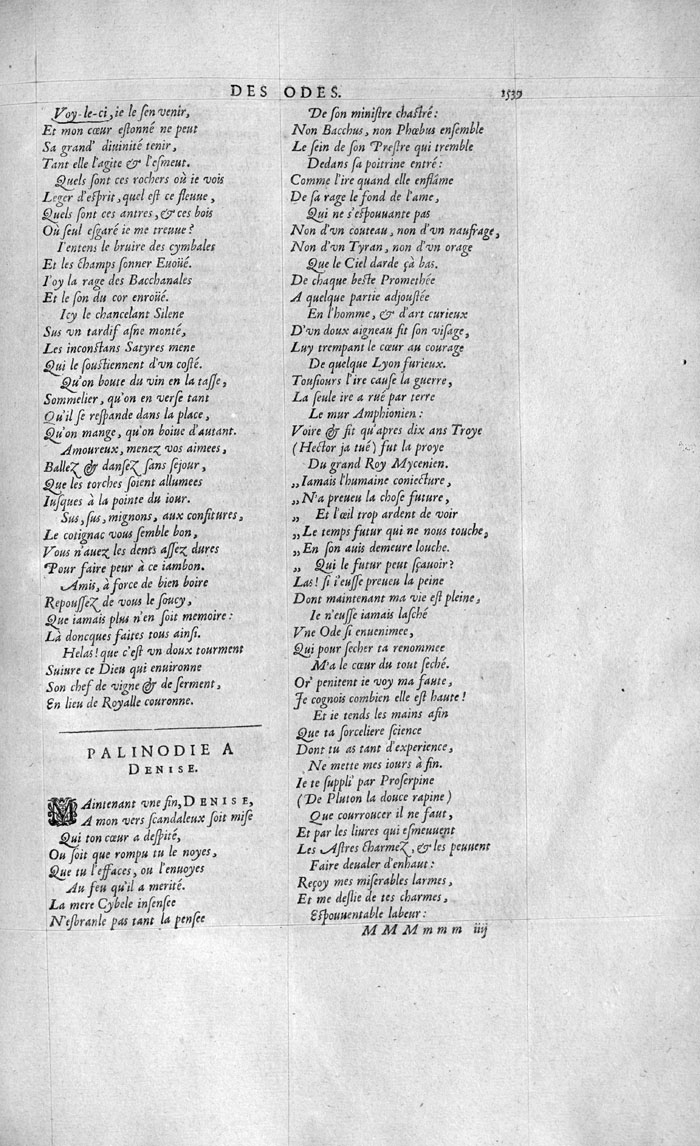 DES ODES.
1539
Voy-le-ci, ie le ſen venir,
Et mon cœur eſtonné ne peut
Sa grand' diuinité tenir,
Tant elle l'agite & l'eſmeut.
Quels ſont ces rochers où ie vois
Leger d'eſprit, quel eſt ce fleuue,
Quels ſont ces antres, & ces bois
Où ſeul eſgaré ie me treuue?
I'entens le bruire des cymbales
Et les champs ſonner Euoüé.
I'oy la rage des Bacchanales
Et le ſon du cor enroüé.
Icy le chancelant Silene
Sus vn tardif aſne monté,
Les inconſtans Satyres mene
Qui le ſouſtiennent d'vn coſté.
Qu'on boute du vin en la taſſe,
Sommelier, qu'on en verſe tant
Qu'il ſe reſpande dans la place,
Qu'on mange, qu'on boiue d'autant.
Amoureux, menez vos aimees,
Ballez & danſez ſans ſejour,
Que les torches ſoient allumees
Iuſques à la pointe du iour.
Sus, ſus, mignons, aux confitures,
Le cotignac vous ſemble bon,
Vous n'auez les dents aſſez dures
Pour faire peur à ce iambon.
Amis, à force de bien boire
Repouſſez de vous le ſoucy,
Que iamais plus n'en ſoit memoire:
Là doncques faites tous ainſi.
Helas! que c'eſt vn doux tourment
Suiure ce Dieu qui enuironne
Son chef de vigne & de ſerment,
En lieu de Royalle couronne.
PALINODIE A
DENISE.
Maintenant vne fin, DENISE,
A mon vers ſcandaleux ſoit miſe
Qui ton cœur a deſpité,
Ou ſoit que rompu tu le noyes,
Que tu l'effaces, ou l'enuoyes
Au feu qu'il a merité.
La mere Cybele inſenſee
N'esbranle pas tant la penſee
De ſon miniſtre chaſtré:
Non Bacchus, non Phœbus enſemble
Le ſein de ſon Preſtre qui tremble
Dedans ſa poitrine entré:
Comme l'ire quand elle enflâme
De ſa rage le fond de l'ame,
Qui ne s'eſpouuante pas
Non d'vn couteau, non d'vn naufrage,
Non d'vn Tyran, non d'vn orage
Que le Ciel darde çà bas.
De chaque beſte Promethée
A quelque partie adjouſtée
En l'homme, & d'art curieux
D'vn doux aigneau fit ſon viſage,
Luy trempant le cœur au courage
De quelque Lyon furieux.
Touſiours l'ire cauſe la guerre,
La ſeule ire a rué par terre
Le mur Amphionien:
Voire & fit qu'apres dix ans Troye
(Hector ja tué) fut la proye
Du grand Roy Mycenien.
„Iamais l'humaine coniecture,
„N'a preueu la choſe future,
„ Et l'œil trop ardent de voir
„Le temps futur qui ne nous touche,
„En ſon auis demeure louche.
„ Qui le futur peut ſçauoir?
Las! ſi i'euſſe preueu la peine
Dont maintenant ma vie eſt pleine,
Ie n'euſſe iamais laſché
Vne Ode ſi enuenimee,
Qui pour ſecher ta renommee
M'a le cœur du tout ſeché.
Or' penitent ie voy ma faute,
Je cognois combien elle eſt haute!
Et ie tends les mains afin
Que ta ſorceliere ſcience
Dont tu as tant d'experience,
Ne mette mes iours à fin.
Ie te ſuppli' par Proſerpine
(De Pluton la douce rapine)
Que courroucer il ne faut,
Et par les liures qui eſmeuuent
Les Aſtres charmez, & les peuuent
Faire deualer d'enhaut:
Reçoy mes miſerables larmes,
Et me deſlie de tes charmes,
Eſpouuentable labeur:
MMMmmm iiij